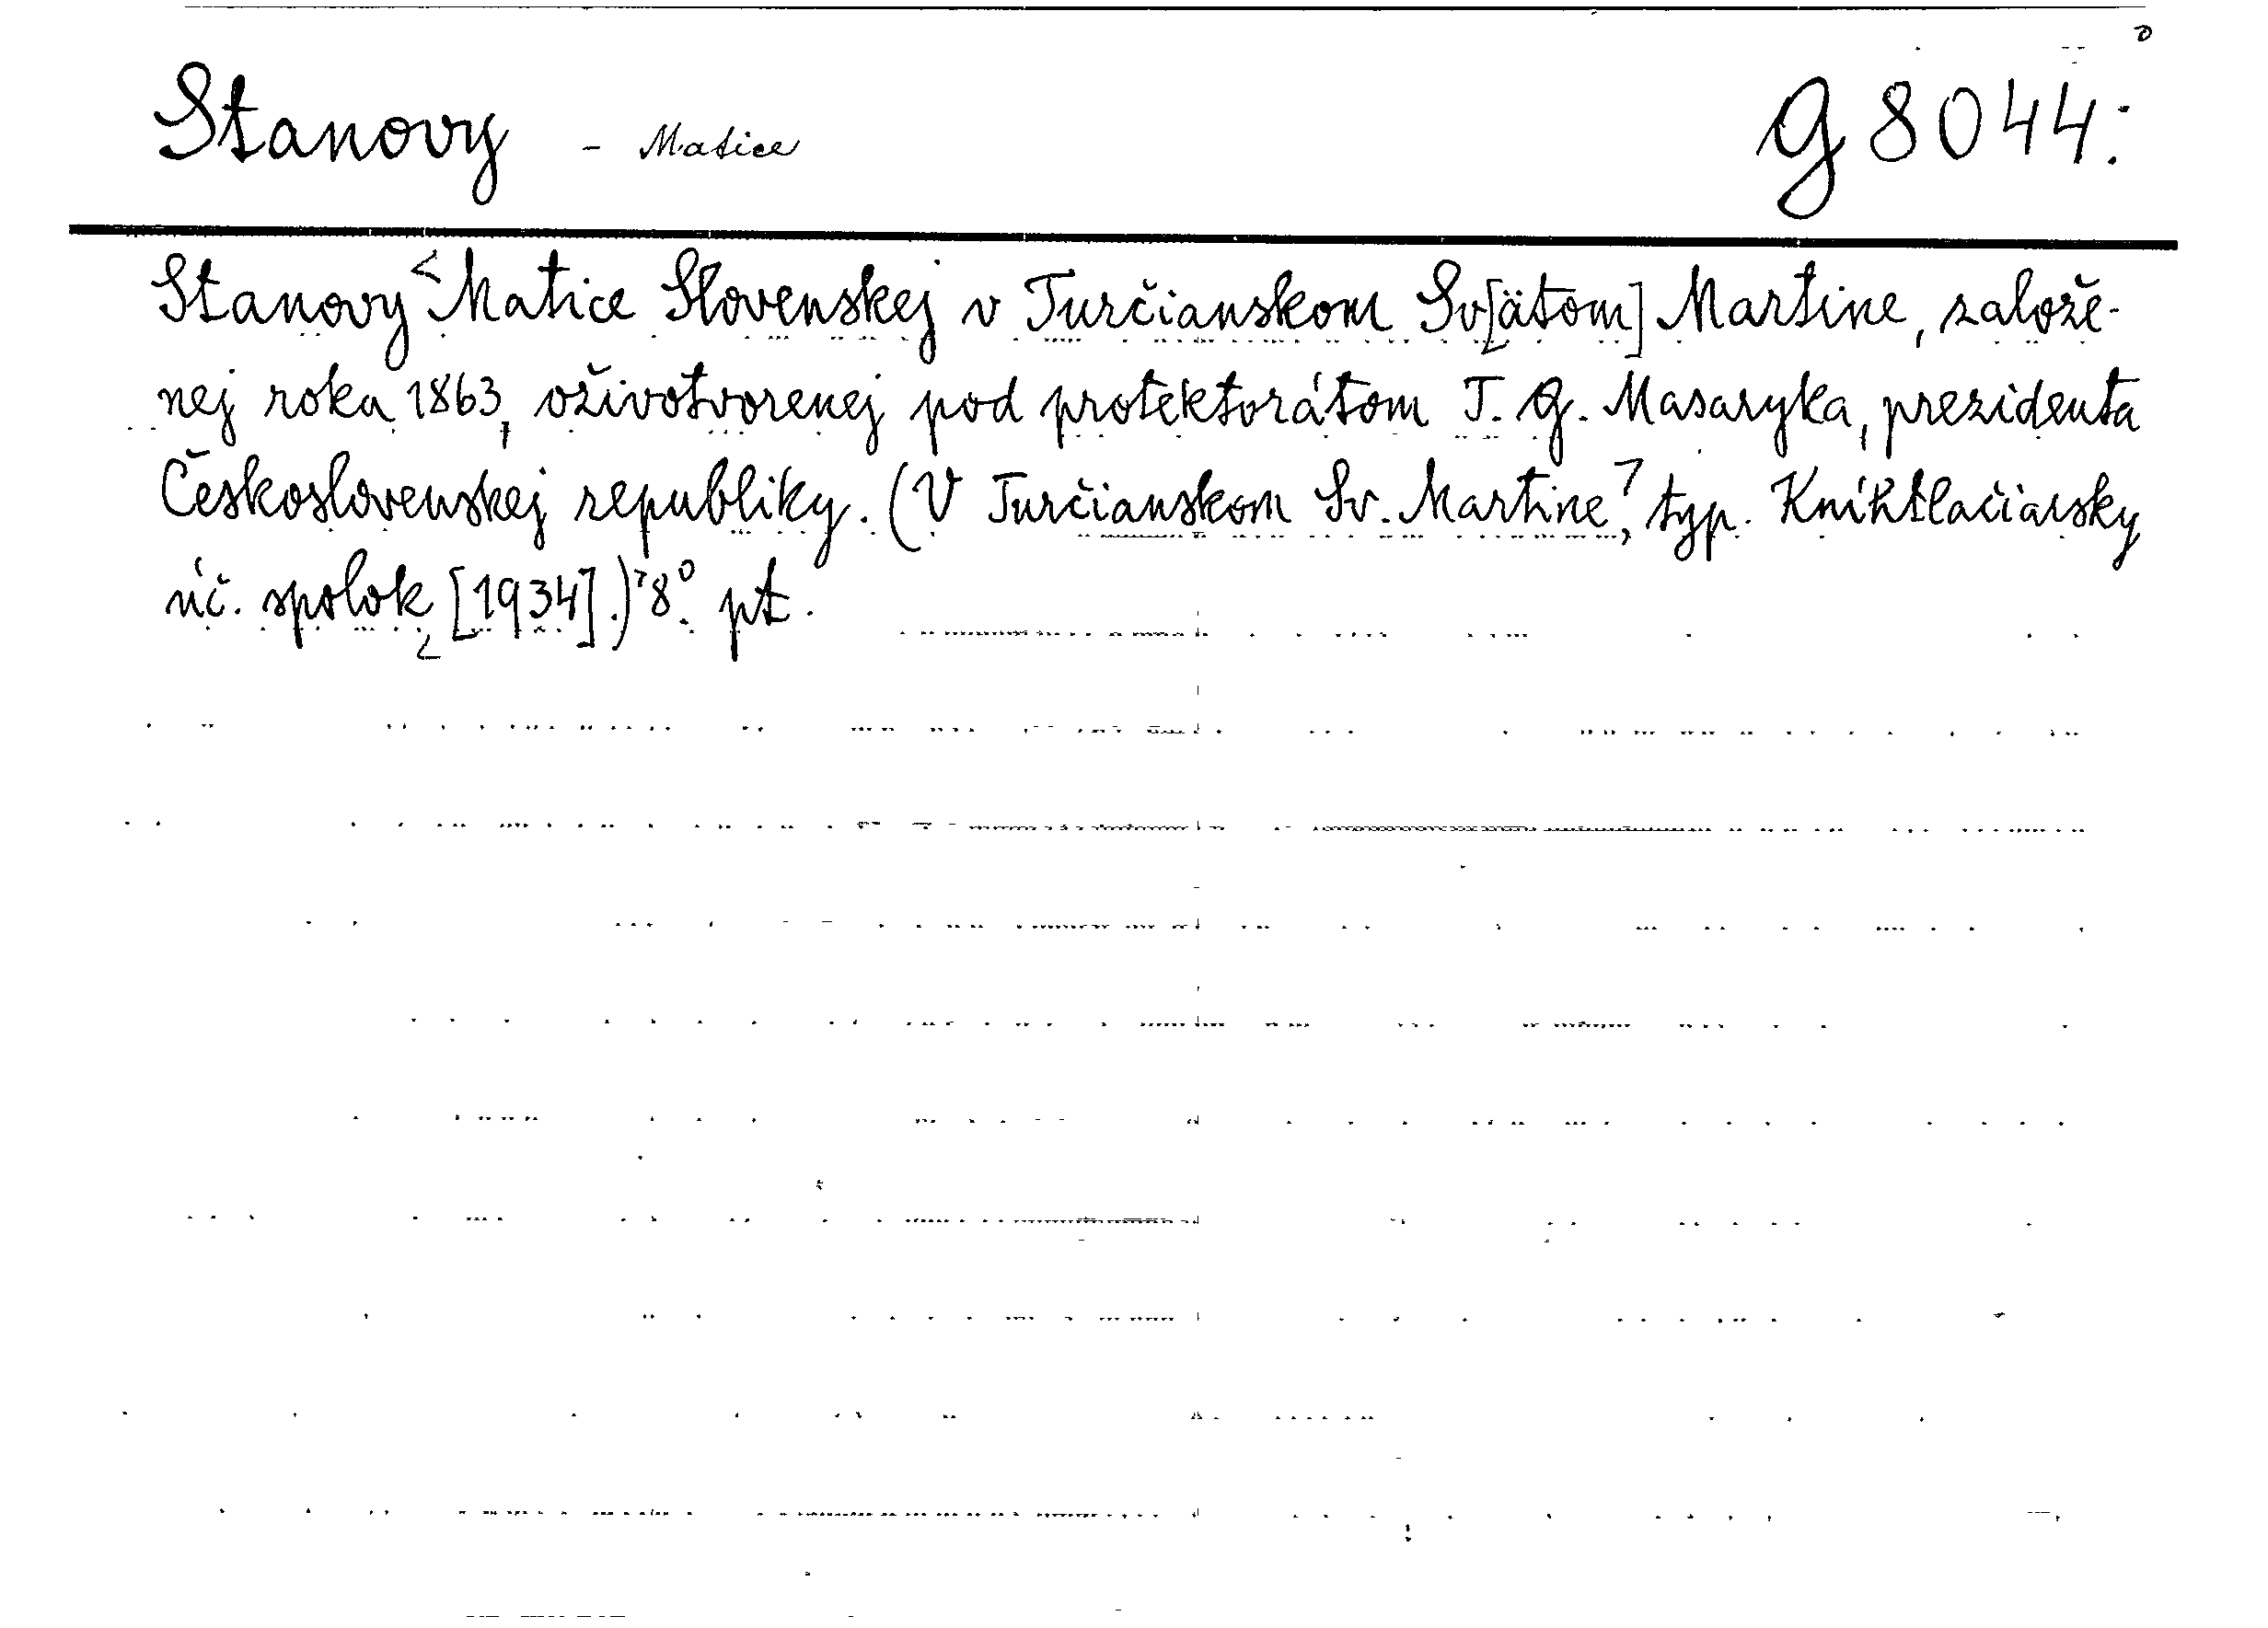 Stanovy - Matice G 8044:
Stanovy Matice Slovenskej v Turčianskom Sv[ätom] Martine, založe-
nej roka 1863, oživotvorenej pod protektorátom T. G. Masaryka, prezidenta
Československej republiky. (V Turčianskom Sv. Martine, typ. Kníhtlačiarsky
úč. spolok, [1934].) 8°. pt.